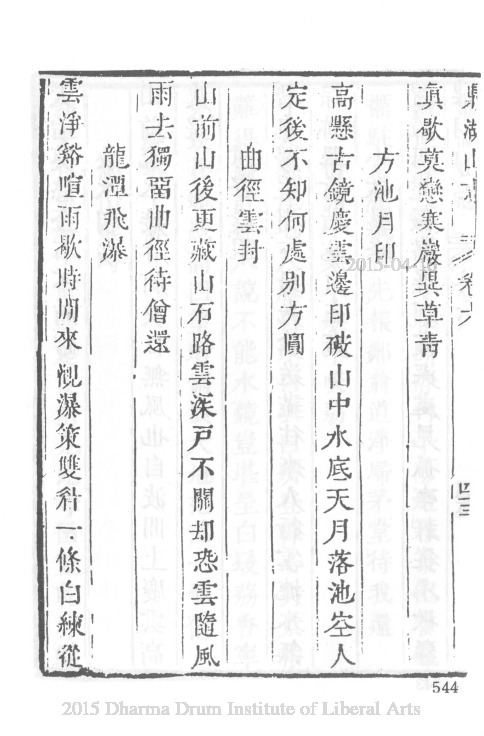 鼎湖山志 卷六 四三
真歇莫戀寒巖異草靑
方池月印
高懸古鏡慶雲邊印破山中水底天月落池空人
定後不知何處別方圓
曲徑雲封
山前山後更藏山石路雲深戶不關却恐雲隨風
雨去獨留曲徑待僧還
龍潭飛瀑
雲淨谿喧雨歇時閒來觀瀑策雙

一條白練從
2015-04-
544
2015 Dharma Drum Institute of Liberal Arts